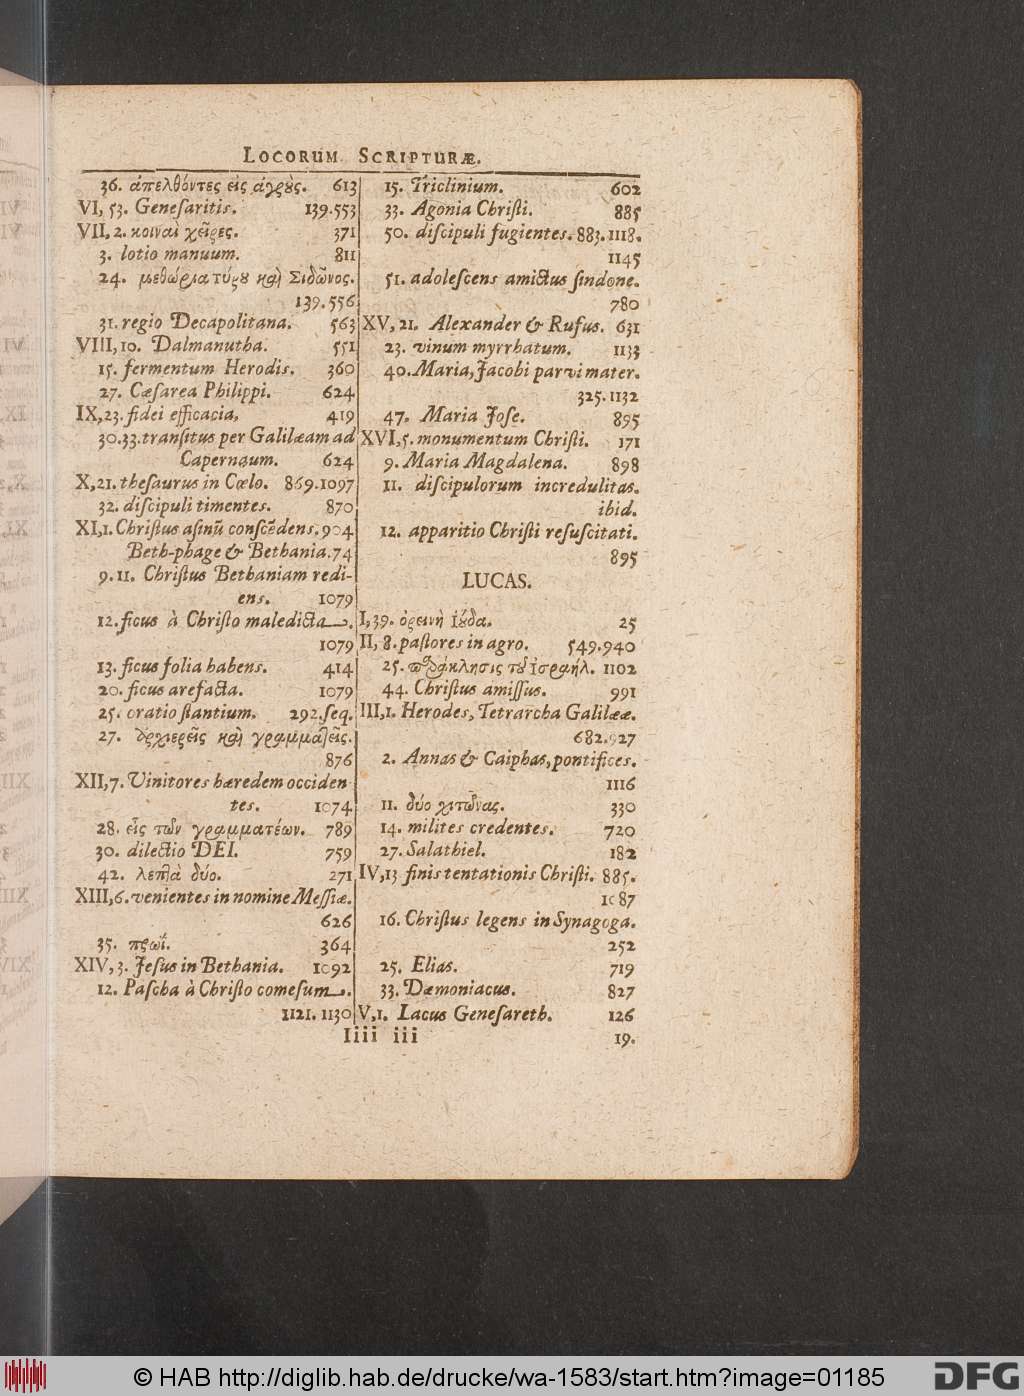 LOCORUM SCRIPTURÆ.
36. ἀπελθόντες εἰς ἀγροὺς. 613
VI, 53. Geneſaritis. 139.553
VII, 2. κοιναὶ χεῖρες. 371
3. lotio manuum. 811
24. μεθώρια τύρου καὶ Σιδῶνος.
139.556
31. regio Decapolitana. 563
VIII, 10. Dalmanutha. 551
15. fermentum Herodis. 360
27. Cæſarea Philippi. 624
IX, 23. fidei efficacia, 419
30.33. tranſitus per Galilæam ad
Capernaum. 624
X, 21. theſaurus in Cœlo. 869.1097
32. diſcipuli timentes. 870
XI, 1. Chriſtus aſinũ conſcẽdens. 904
Beth-phage & Bethania. 74
9.11. Chriſtus Bethaniam redi-
ens. 1079
12. ficus à Chriſto maledicta.
1079
13. ficus folia habens. 414
20. ficus arefacta. 1079
25. oratio ſtantium. 292.ſeq.
27. ἀρχιερεῖς καὶ γραμματεῖς.
876
XII, 7. Vinitores hæredem occiden
tes. 1074
28. εἷς τῶν γραμματέων. 789
30. dilectio DEI. 759
42. λεπτὰ δύο. 271
XIII, 6. venientes in nomine Meſſiæ.
626
35. πρωῒ. 364
XIV, 3. Jeſus in Bethania. 1092
12. Paſcha à Chriſto comeſum.
1121. 1130
15. Triclinium. 602
33. Agonia Chriſti. 885
50. diſcipuli fugientes. 883.1118.
1145
51. adoleſcens amictus ſindone.
780
XV, 21. Alexander & Rufus. 631
23. vinum myrrhatum. 1133
40. Maria, Jacobi parvi mater.
325.1132
47. Maria Joſe. 895
XVI, 5. monumentum Chriſti. 171
9. Maria Magdalena. 898
11. diſcipulorum incredulitas.
ibid.
12. apparitio Chriſti reſuſcitati.
895
LUCAS.
I, 39. ὀρεινὴ Ἰούδα. 25
II, 8. paſtores in agro. 549.940
25. παράκλησις τοῦ ἰσραήλ. 1102
44. Chriſtus amiſſus. 991
III, 1. Herodes, Tetrarcha Galilææ.
682.927
2. Annas & Caiphas, pontifices.
1116
11. δύο χιτῶνας. 330
14. milites credentes. 720
27. Salathiel. 182
IV, 13 finis tentationis Chriſti. 885.
1087
16. Chriſtus legens in Synagoga.
252
25. Elias. 719
33. Dæmoniacus. 827
V, 1. Lacus Geneſareth. 126
Iiii iii 19.
© HAB http://diglib.hab.de/drucke/wa-1583/start.htm?image=01185
DFG